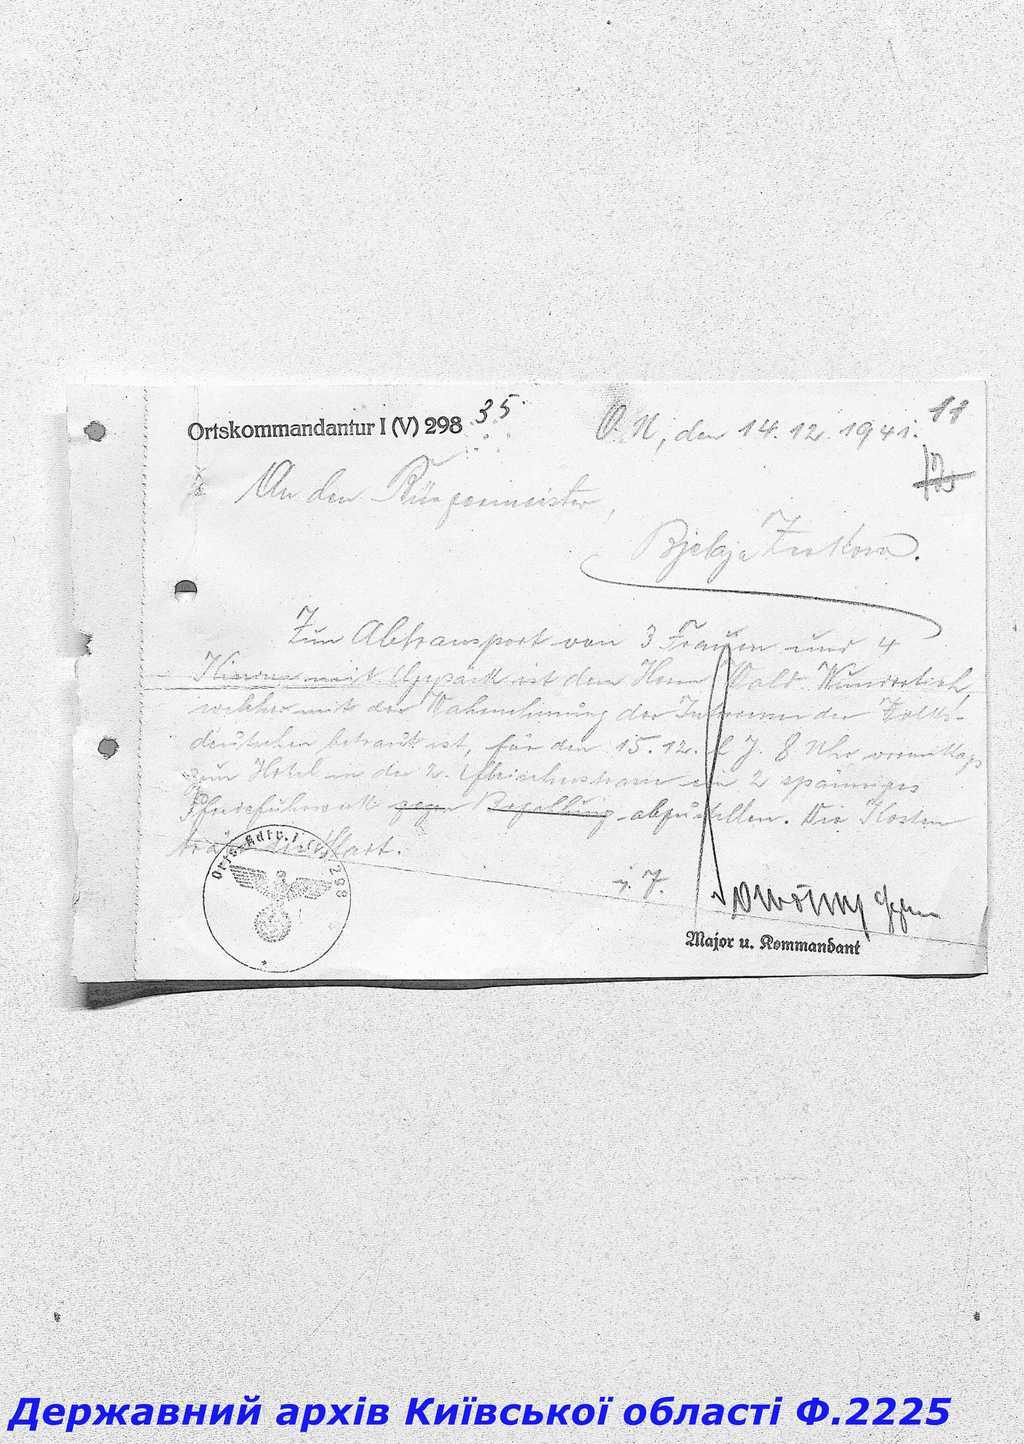 Ortskommandantur I (V) 298
35
O. U, den 14.12.1941.
11
An den Bürgermeister,
Bjelaja Zerkow.
Zum Abtransport von 3 Frauen und 4
Kindern mit Gepäck ist dem Herrn Wald. Wunderlich,
welcher mit der Wahrnehmung der Interessen der Volks-
deutschen betraut ist, für den 15.12. l. J. 8 Uhr vormittags
zum Hotel in der 2. ein 2 spänniges
Pferdefuhrwerk gegen abzustellen. Die Kosten
trägt
Orts-Kdtr. I (V) 298
Major u. Kommandant
Державний архів Київської області Ф.2225